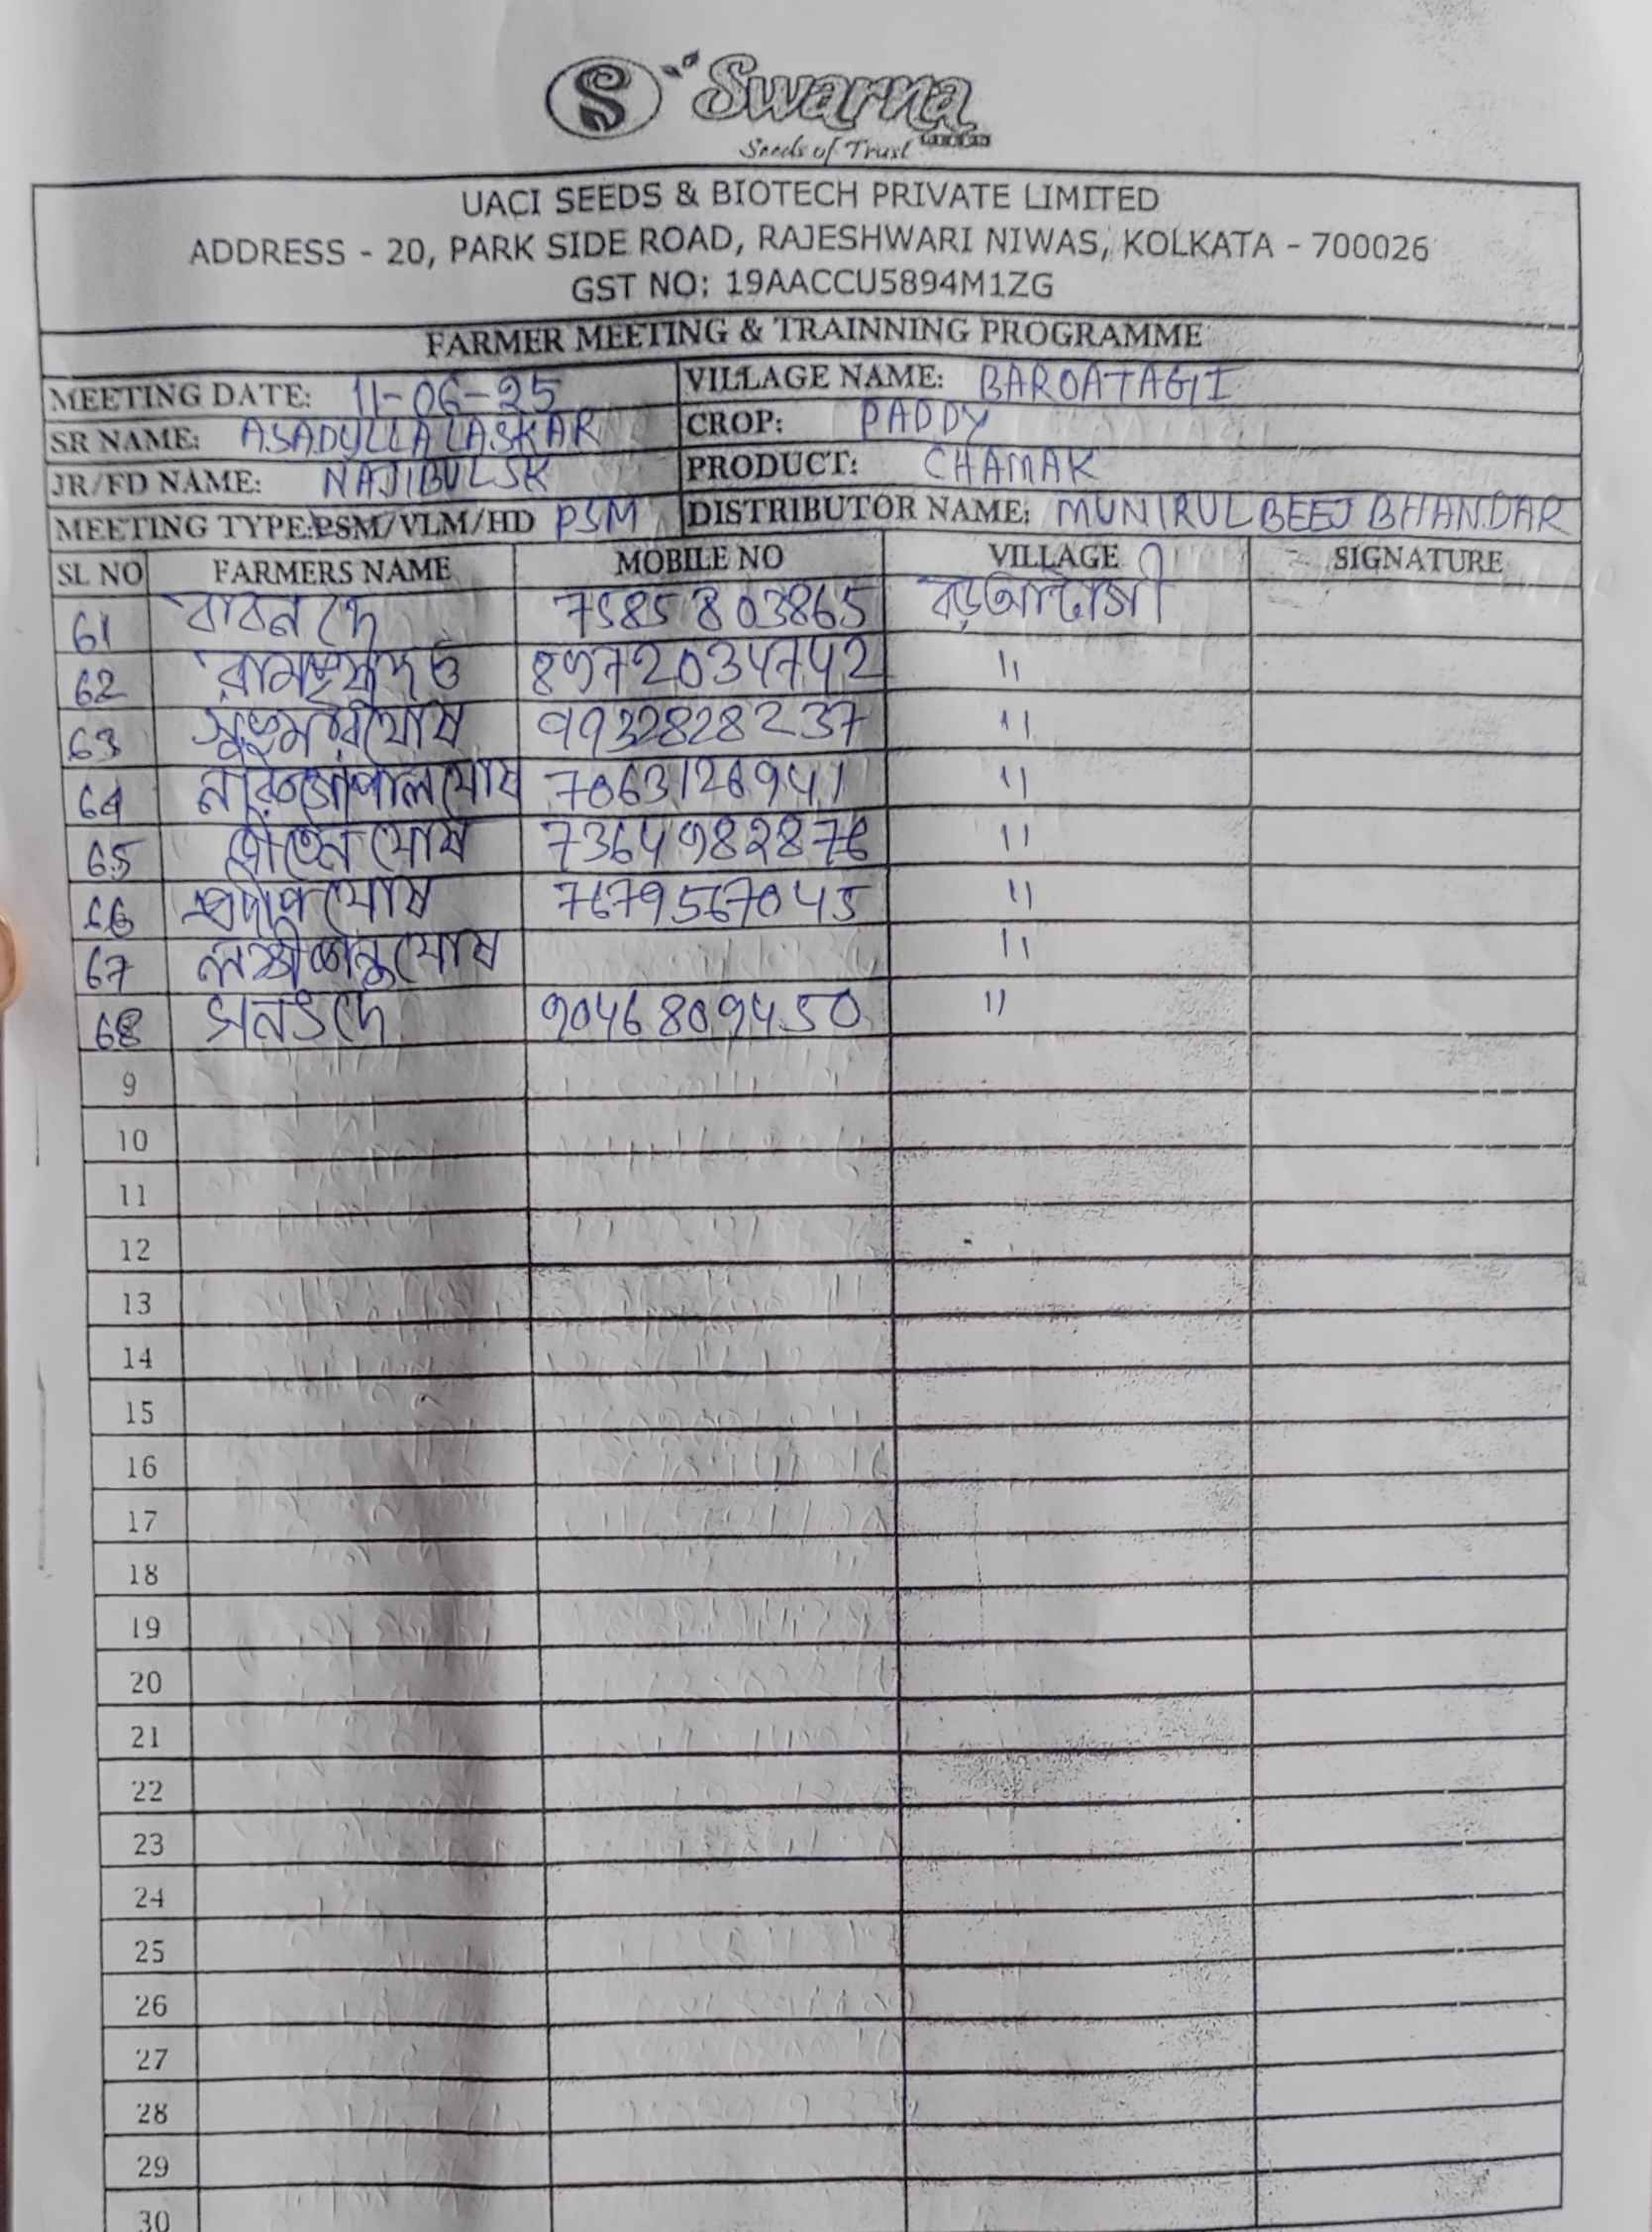 S Swarna
Seeds of Trust
UACI SEEDS & BIOTECH PRIVATE LIMITED
ADDRESS - 20, PARK SIDE ROAD, RAJESHWARI NIWAS, KOLKATA - 700026
GST NO: 19AACCU5894M1ZG
FARMER MEETING & TRAINNING PROGRAMME
MEETING DATE: 11-06-25 VILLAGE NAME: BAROATAGI
SR NAME: ASADULLA LASKAR CROP: PADDY
JR/FD NAME: NAJIBUL SK PRODUCT: CHAMAK
MEETING TYPE:PSM/VLM/HD PSM DISTRIBUTOR NAME: MUNIRUL BEEJ BHANDAR
SL NO FARMERS NAME MOBILE NO VILLAGE SIGNATURE
61 বাবন দে 7585803865 বড়আটাগী
62 8972034742 "
63 ঘোষ 9932828237 "
64 ঘোষ 7063126941 "
65 ঘোষ 7364982876 "
66 প্রদীপ ঘোষ 7679567045 "
67 ঘোষ "
68 দে 9046809450 "
9
10
11
12
13
14
15
16
17
18
19
20
21
22
23
24
25
26
27
28
29
30